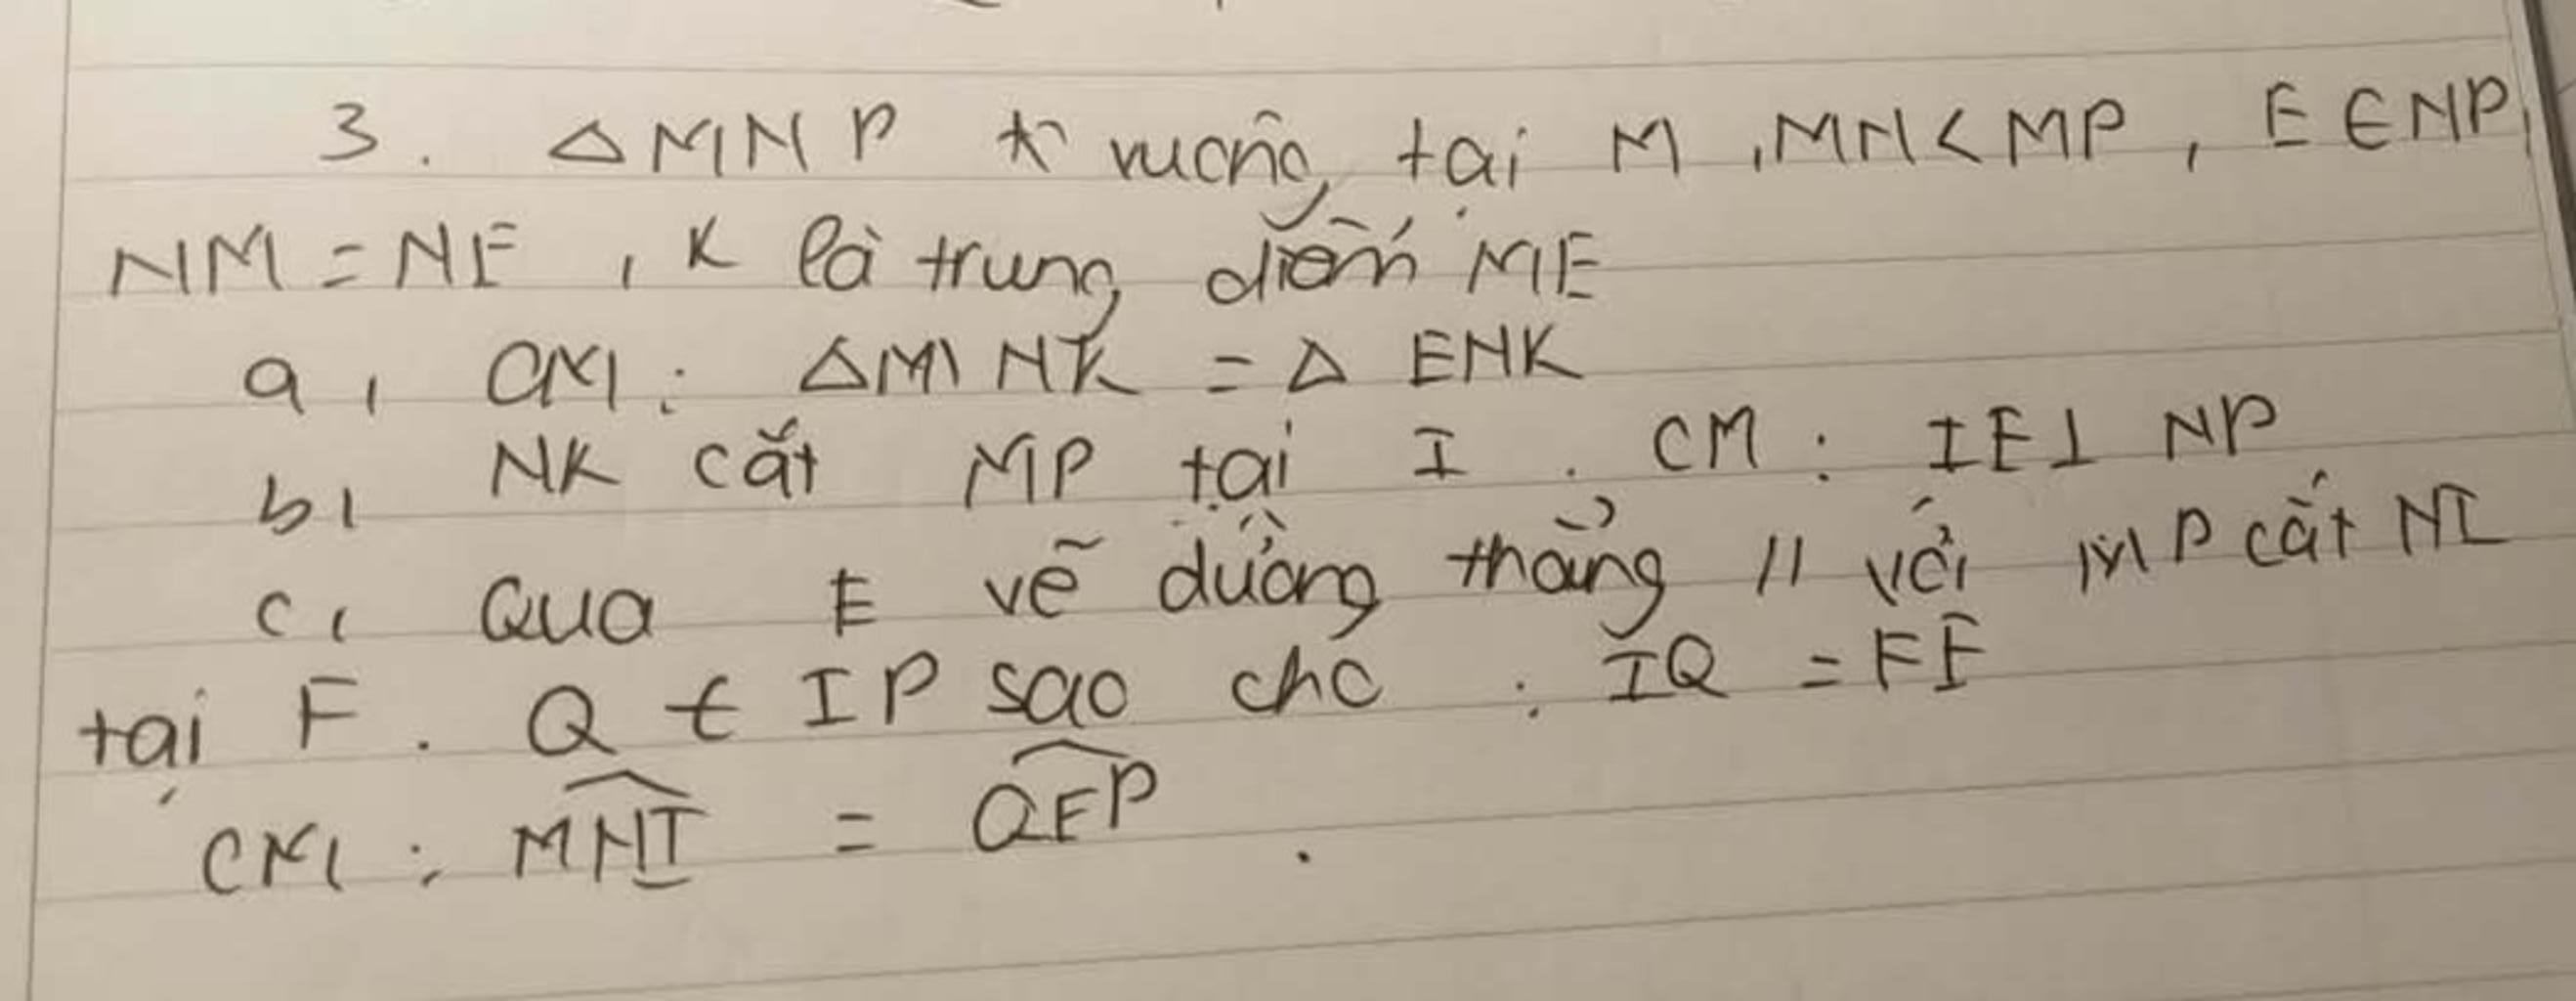 3. △MNP vuông tại M, MN < MP, E ∈ NP,
NM = NE, K là trung điểm ME
a, CM: △MNK = △ENK
b, NK cắt MP tại I. CM: IE ⊥ NP
c, Qua E vẽ đường thẳng // với MP cắt NI
tại F. Q ∈ IP sao cho: IQ = FE
CM: \widehat{MNI} = \widehat{QEP}.